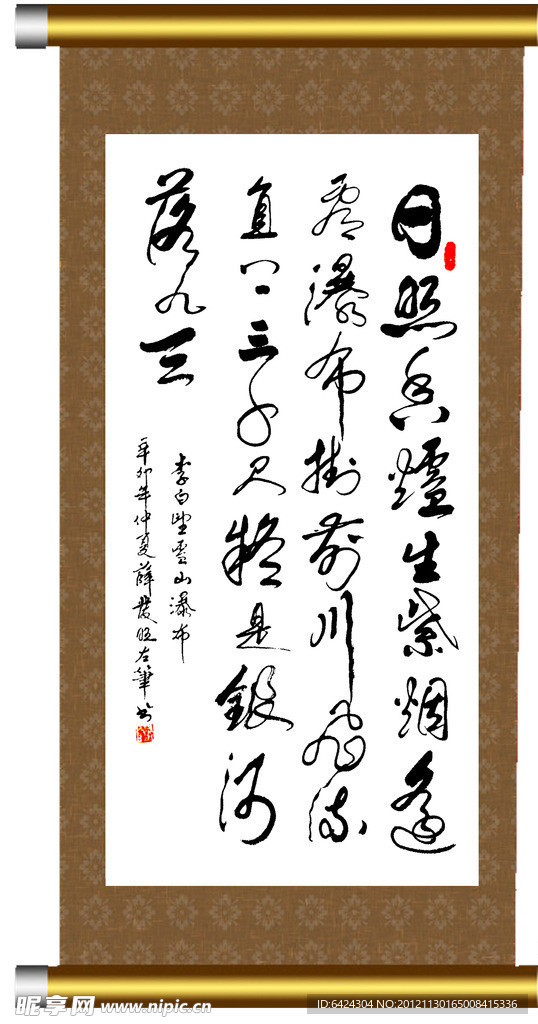 日照香爐生紫烟遥
看瀑布掛前川飛流
直下三千尺疑是銀河
落九天
李白望廬山瀑布
辛卯年仲夏薛發旺左筆书
昵享网 www.nipic.cn
ID:6424304 NO:20121130165008415336